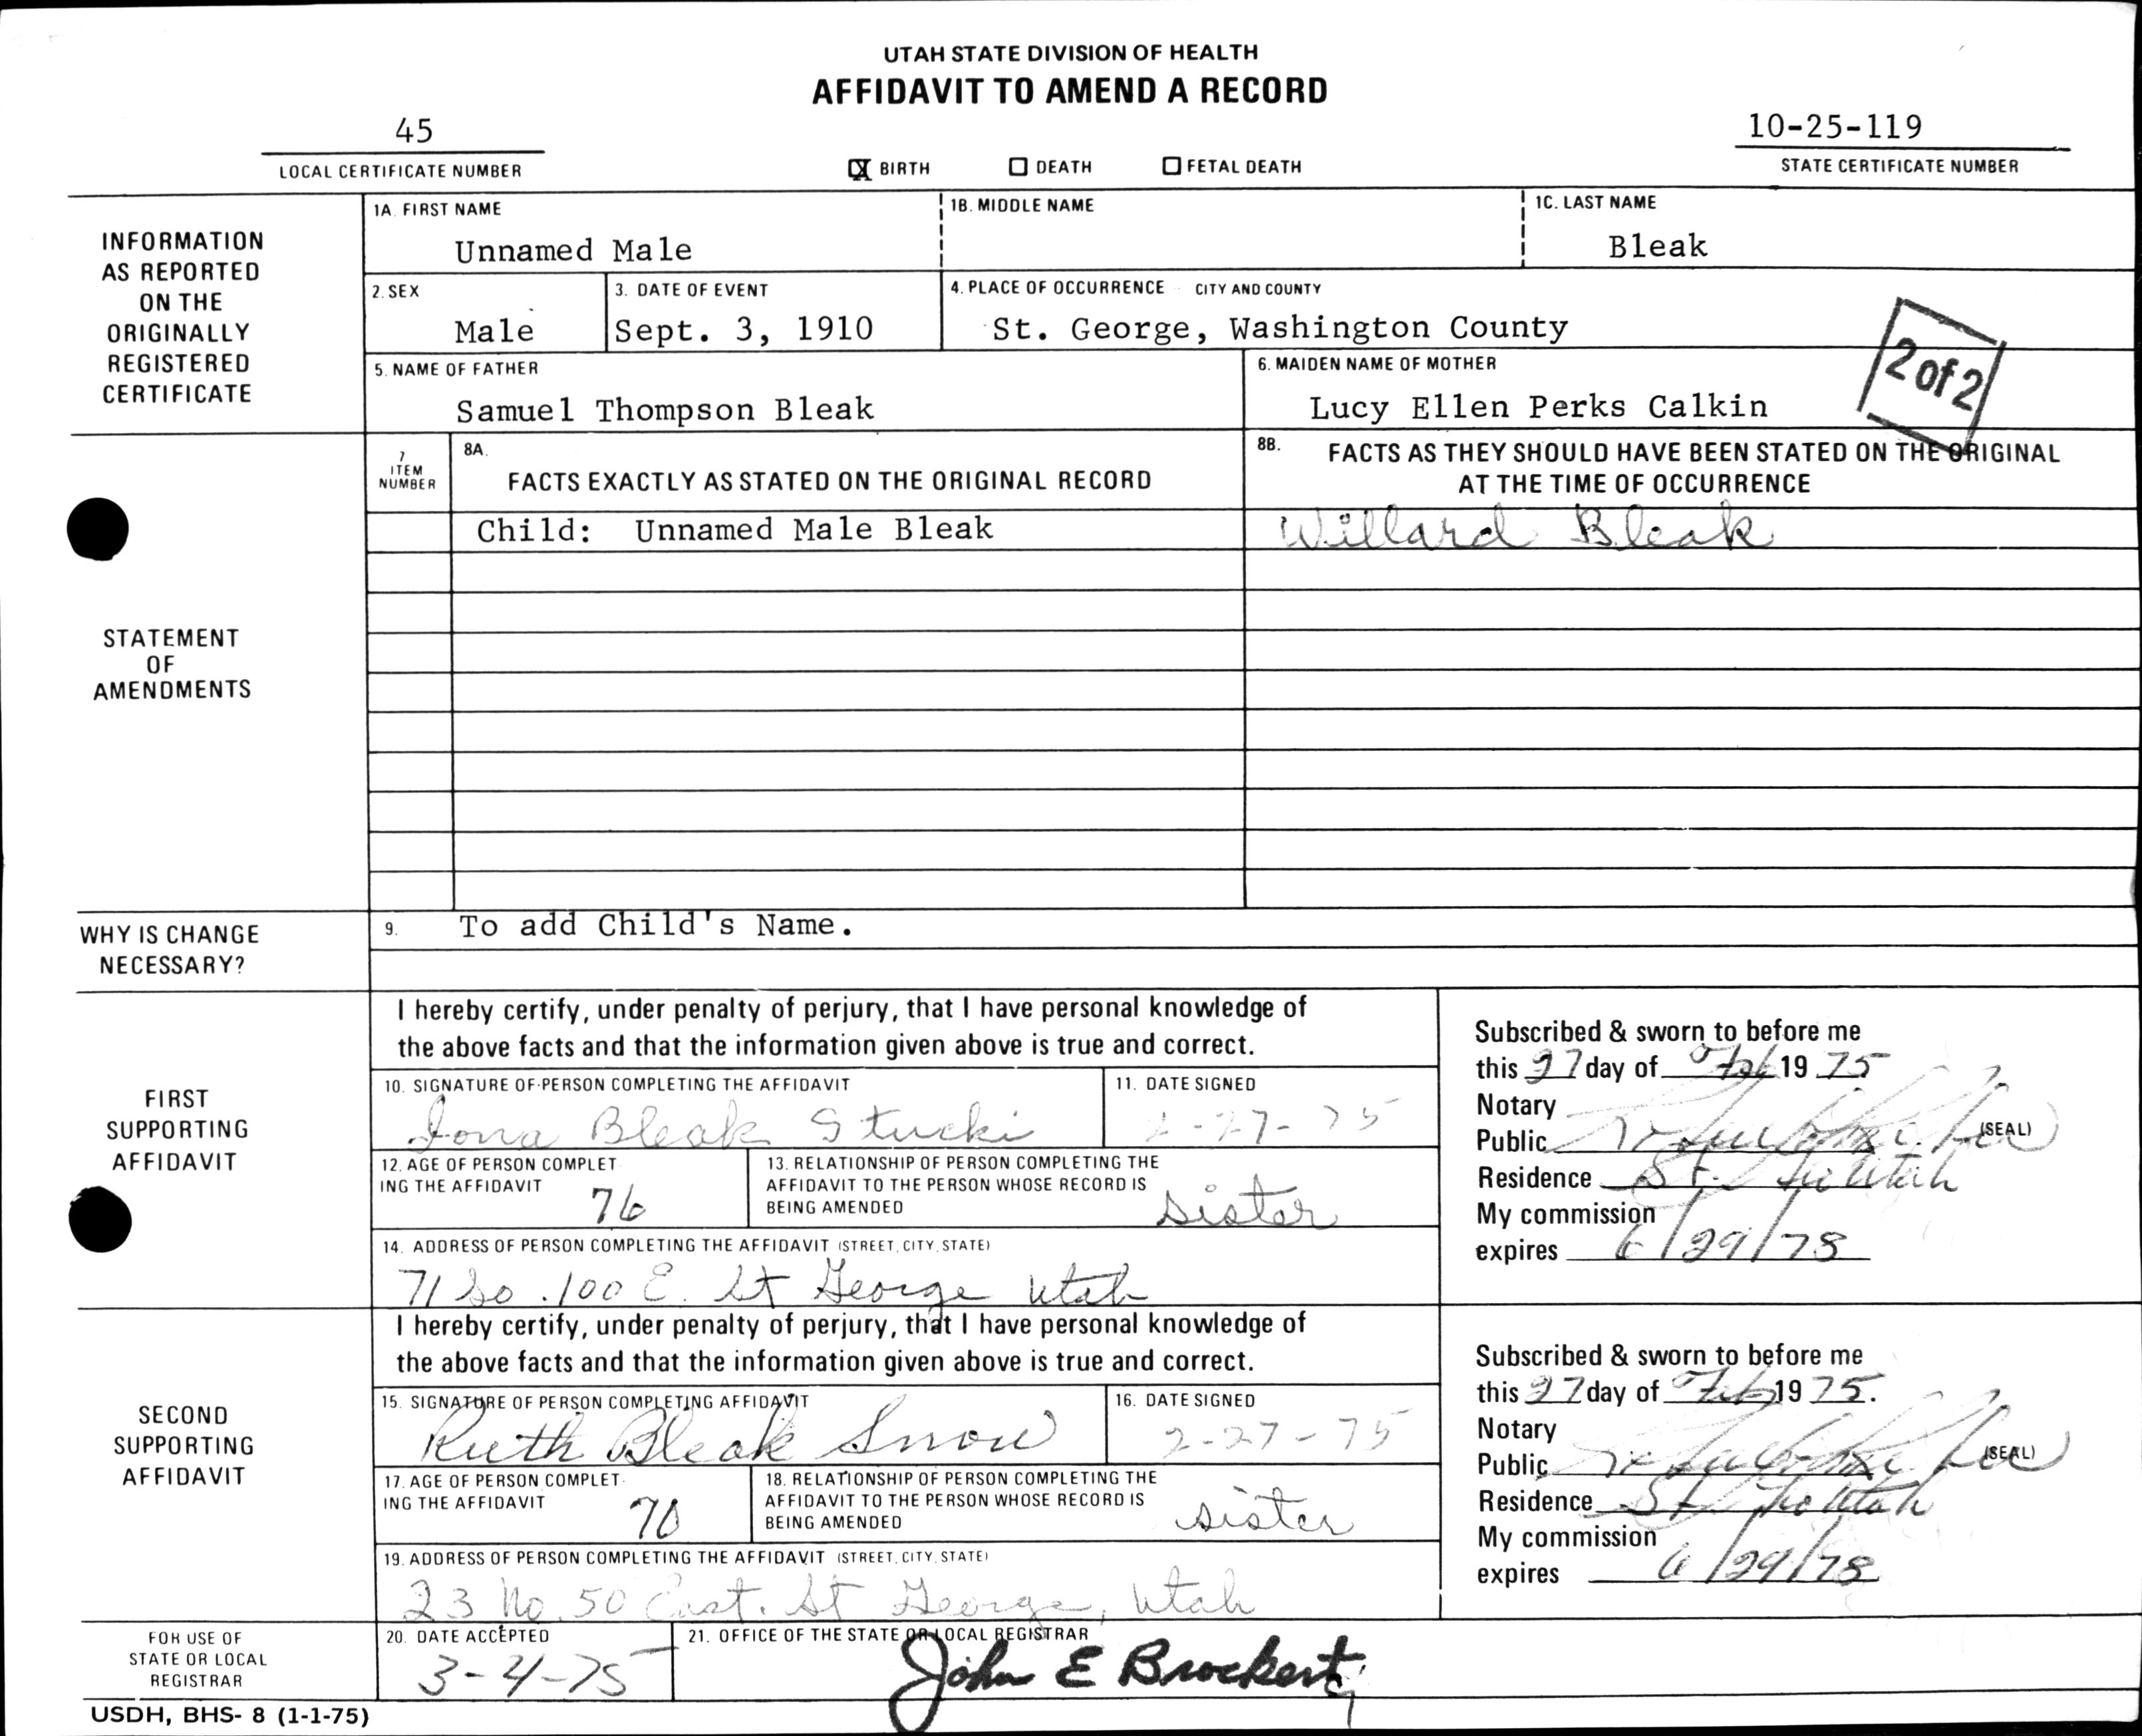 UTAH STATE DIVISION OF HEALTH
AFFIDAVIT TO AMEND A RECORD
45
LOCAL CERTIFICATE NUMBER
☒ BIRTH ☐ DEATH ☐ FETAL DEATH
10-25-119
STATE CERTIFICATE NUMBER
INFORMATION
AS REPORTED
ON THE
ORIGINALLY
REGISTERED
CERTIFICATE
1A. FIRST NAME
Unnamed Male
1B. MIDDLE NAME
1C. LAST NAME
Bleak
2. SEX
Male
3. DATE OF EVENT
Sept. 3, 1910
4. PLACE OF OCCURRENCE CITY AND COUNTY
St. George, Washington County
5. NAME OF FATHER
Samuel Thompson Bleak
6. MAIDEN NAME OF MOTHER
Lucy Ellen Perks Calkin
2 of 2
STATEMENT
OF
AMENDMENTS
7
ITEM
NUMBER
8A.
FACTS EXACTLY AS STATED ON THE ORIGINAL RECORD
8B. FACTS AS THEY SHOULD HAVE BEEN STATED ON THE ORIGINAL
AT THE TIME OF OCCURRENCE
Child: Unnamed Male Bleak
Willard Bleak
WHY IS CHANGE
NECESSARY?
9. To add Child's Name.
FIRST
SUPPORTING
AFFIDAVIT
I hereby certify, under penalty of perjury, that I have personal knowledge of
the above facts and that the information given above is true and correct.
10. SIGNATURE OF PERSON COMPLETING THE AFFIDAVIT
Iona Bleak Stucki
11. DATE SIGNED
2-27-75
12. AGE OF PERSON COMPLET
ING THE AFFIDAVIT 76
13. RELATIONSHIP OF PERSON COMPLETING THE
AFFIDAVIT TO THE PERSON WHOSE RECORD IS
BEING AMENDED sister
14. ADDRESS OF PERSON COMPLETING THE AFFIDAVIT (STREET, CITY, STATE)
71 So. 100 E. St George Utah
Subscribed & sworn to before me
this 27 day of Feb 19 75
Notary
Public (SEAL)
Residence St. Utah
My commission
expires 6/29/78
SECOND
SUPPORTING
AFFIDAVIT
I hereby certify, under penalty of perjury, that I have personal knowledge of
the above facts and that the information given above is true and correct.
15. SIGNATURE OF PERSON COMPLETING AFFIDAVIT
Ruth Bleak Snow
16. DATE SIGNED
2-27-75
17. AGE OF PERSON COMPLET
ING THE AFFIDAVIT 70
18. RELATIONSHIP OF PERSON COMPLETING THE
AFFIDAVIT TO THE PERSON WHOSE RECORD IS
BEING AMENDED sister
19. ADDRESS OF PERSON COMPLETING THE AFFIDAVIT (STREET, CITY, STATE)
23 No. 50 East. St George, Utah
Subscribed & sworn to before me
this 27 day of Feb 19 75.
Notary
Public (SEAL)
Residence St. Utah
My commission
expires 6/29/78
FOR USE OF
STATE OR LOCAL
REGISTRAR
20. DATE ACCEPTED
3-4-75
21. OFFICE OF THE STATE OR LOCAL REGISTRAR
John E Brockert
USDH, BHS- 8 (1-1-75)